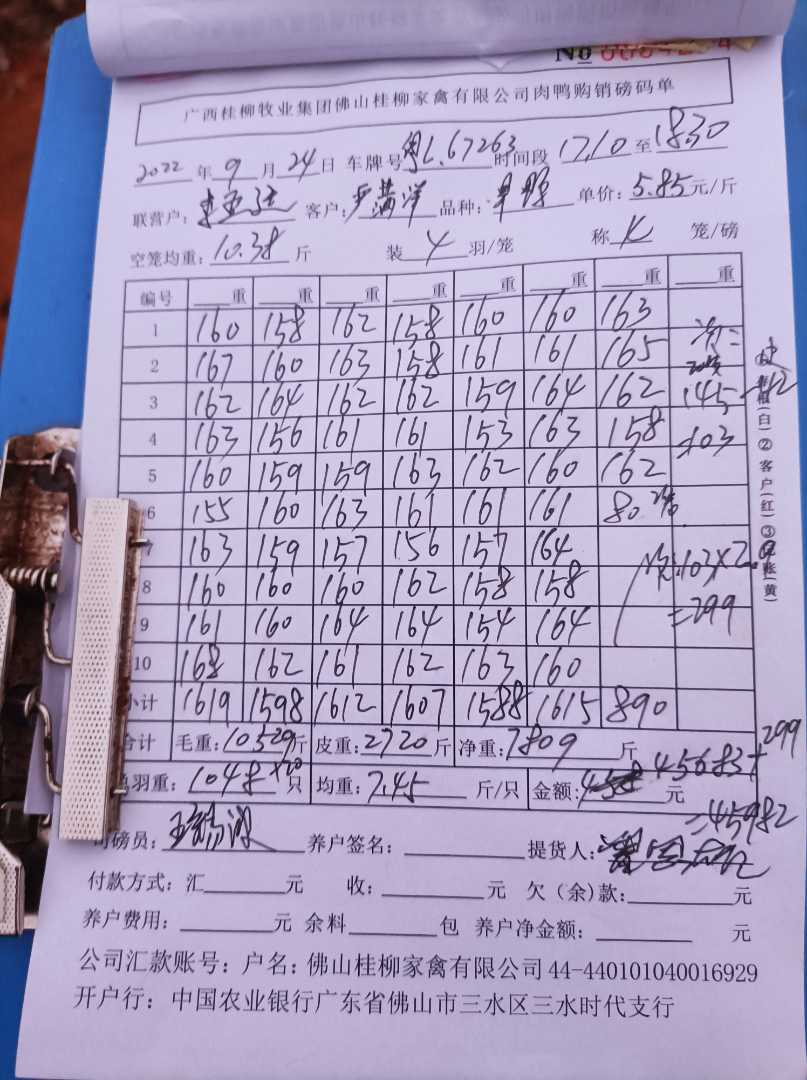 No
广西桂柳牧业集团佛山桂柳家禽有限公司肉鸭购销磅码单
2022 年 9 月 24 日 车牌号 粤L.67263 时间段 17.10 至 1830
联营户: 客户: 严满洋 品种: 单价: 5.85 元/斤
空笼均重: 10.38 斤 装 4 羽/笼 称 K 笼/磅
编号 重 重 重 重 重 重 重 重
1 160 158 162 158 160 160 163
2 167 160 163 158 161 161 165
3 162 164 162 162 159 164 162 145-42
4 163 156 161 161 153 163 158 =103
5 160 159 159 163 162 160 162
6 155 160 163 161 161 161 80
7 163 159 157 156 157 164
8 160 160 160 162 158 158 103×2.9
9 161 160 164 164 154 164 =299
10 168 162 161 162 163 160
小计 1619 1598 1612 1607 1588 1615 890
合计 毛重: 10529 斤 皮重: 2720 斤 净重: 7809 斤
羽重: 1048+20 只 均重: 7.45 斤/只 金额: 45683+299 元
=45982
司磅员: 养户签名: 提货人:
付款方式: 汇 元 收: 元 欠(余)款: 元
养户费用: 元 余料 包 养户净金额: 元
公司汇款账号: 户名: 佛山桂柳家禽有限公司 44-440101040016929
开户行: 中国农业银行广东省佛山市三水区三水时代支行
(白) ② 客户(红) ③ (黄)